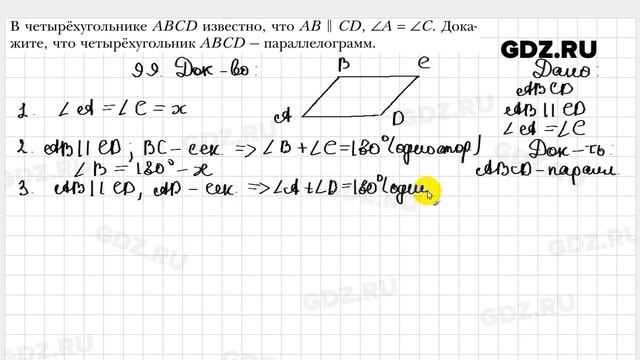 В четырёхугольнике ABCD известно, что AB ∥ CD, ∠A = ∠C. Дока-
жите, что четырёхугольник ABCD — параллелограмм.
GDZ.RU
99. Док-во:
B C
A D
Дано:
ABCD
AB || CD
∠A = ∠C
Док-ть
ABCD - паралл.
1. ∠A = ∠C = x
2. AB || CD; BC - сек => ∠B + ∠C = 180° (одностор)
∠B = 180° - x
3. AB || CD, AD - сек => ∠A + ∠D = 180° (один
GDZ.RU
GDZ.RU
GDZ.RU
GDZ.RU
GDZ.RU